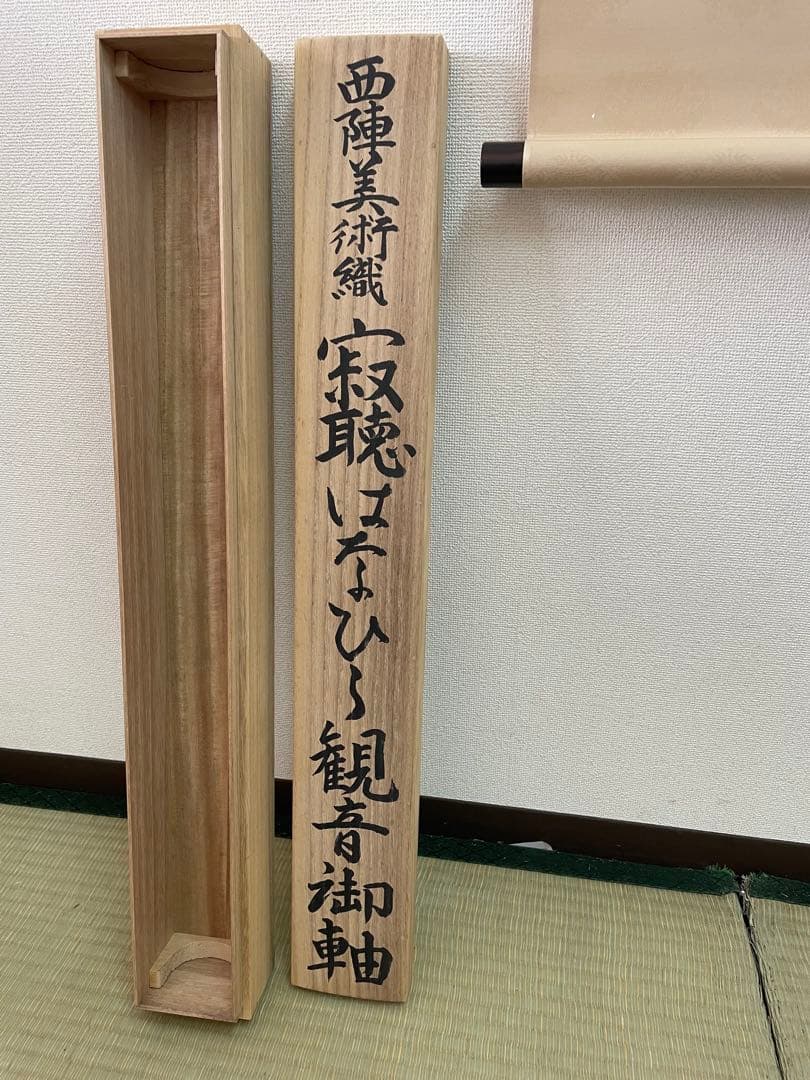 西陣美術織 寂聴はなひら観音御軸